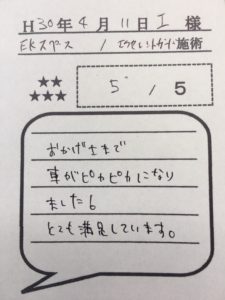 H30年4月11日 I 様
EKスペース / エクセレントガード施術
★★
★★★
5 / 5
おかげさまで
車がピカピカになり
ました。
とても満足しています。